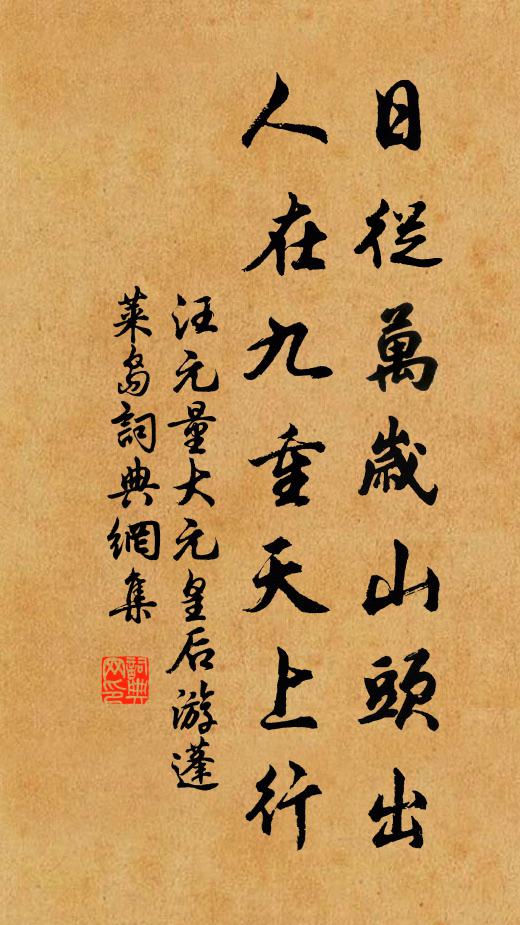 日從萬歲山頭出
人在九重天上行
汪元量大元皇后游蓬
萊島詞典網集
詞典
网印